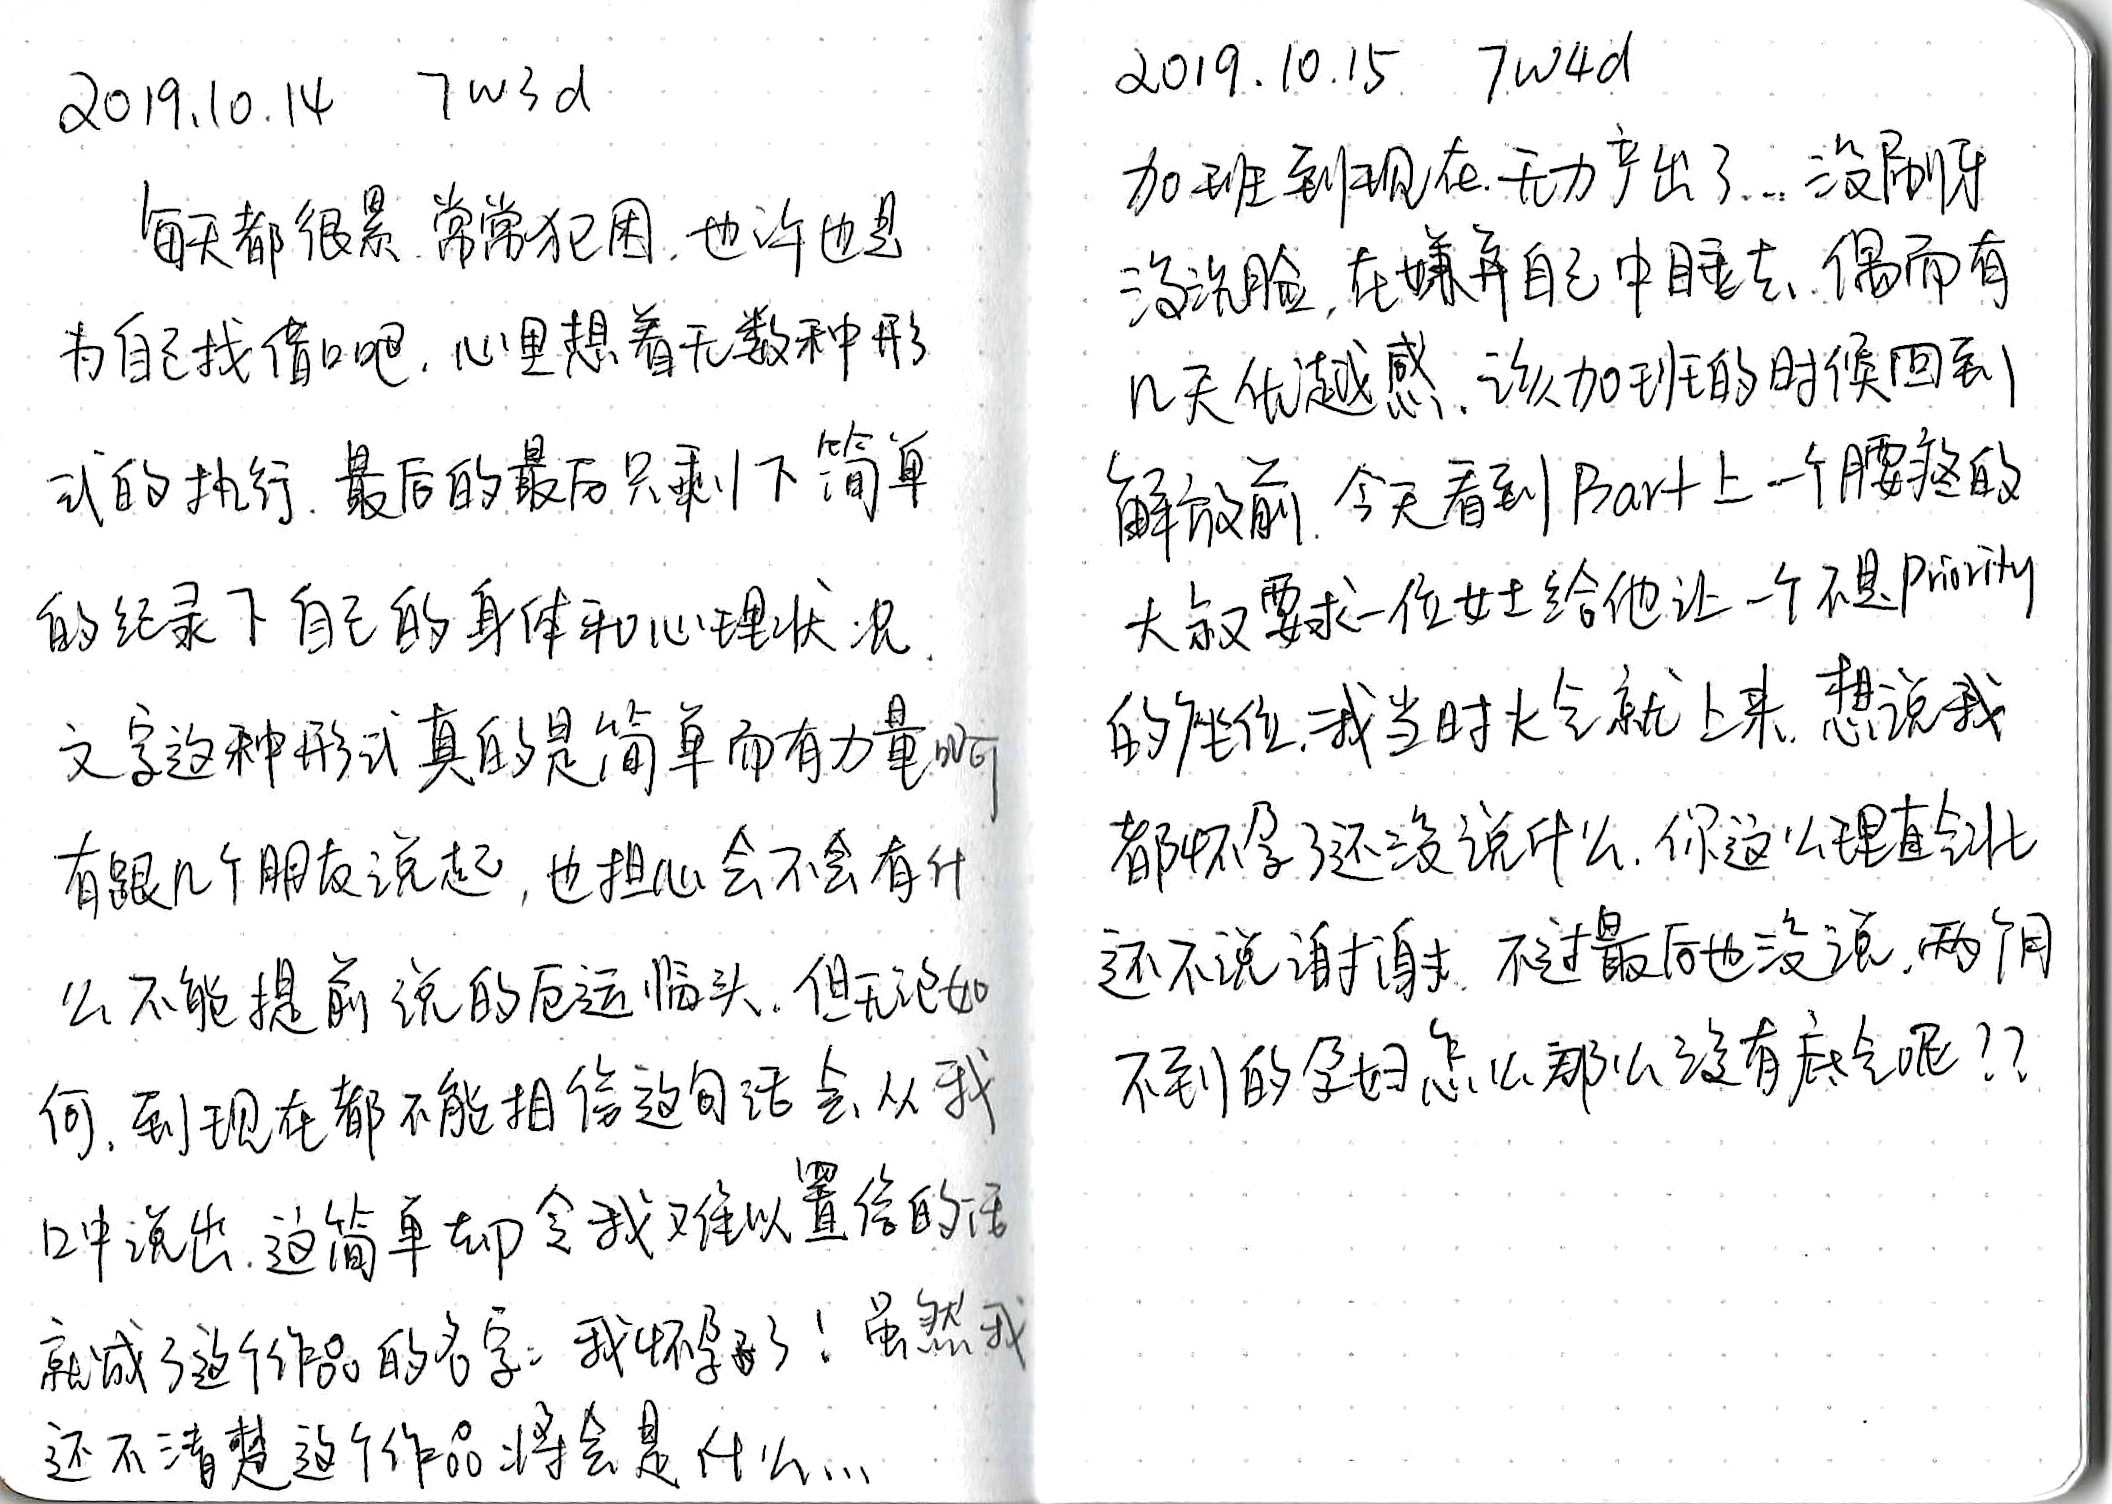 2019.10.14 7w3d
每天都很累.常常犯困.也许也是
为自己找借口吧.心里想着无数种形
式的执行.最后的最后只剩下简单
的纪录下自己的身体和心理状况.
文字这种形式真的是简单而有力量啊
有跟几个朋友说起,也担心会不会有什
么不能提前说的厄运临头.但无论如
何.到现在都不能相信这句话会从我
口中说出.这简单却令我难以置信的话
就成了这个作品的名字:我怀孕了!虽然我
还不清楚这个作品将会是什么...
2019.10.15 7w4d
加班到现在.无力产出了...没刷牙
没洗脸,在嫌弃自己中睡去.偶而有
几天优越感.该加班的时候回到
解放前.今天看到Bart上一个腰疼的
大叔要求一位女士给他让一个不是priority
的座位.我当时火气就上来.想说我
都怀孕了还没说什么.你这么理直气壮
还不说谢谢.不过最后也没说.两个月
不到的孕妇怎么那么没有底气呢??